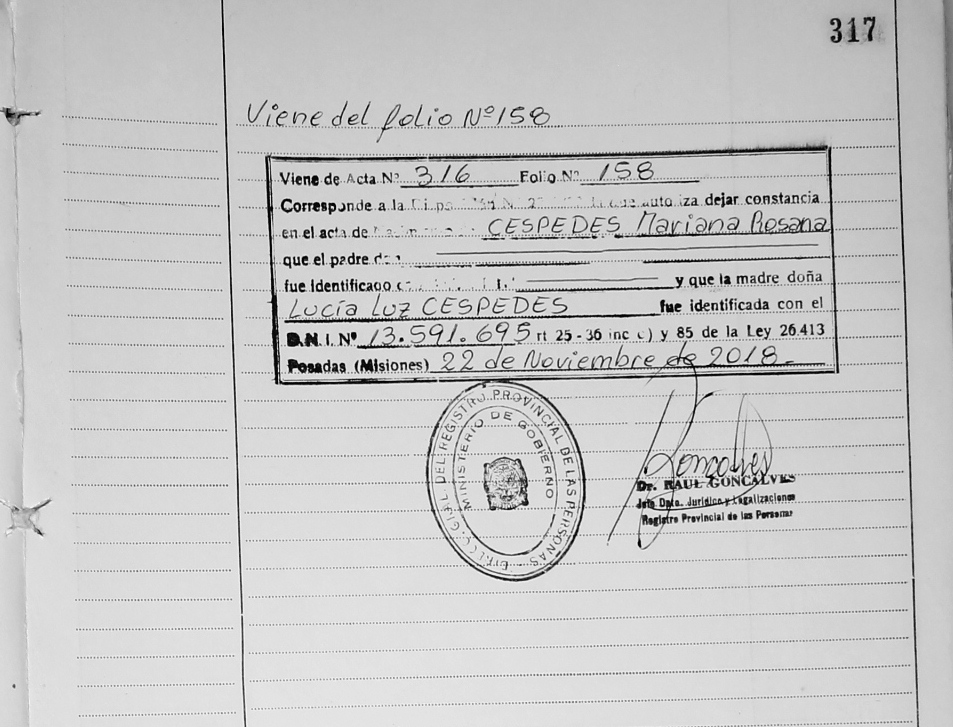 317
Viene del folio Nº 158
Viene de Acta Nº 316 Folio Nº 158
Corresponde a la autoriza dejar constancia
en el acta de CESPEDES Mariana Rosana
que el padre
fue identificado y que la madre doña
Lucía Luz CESPEDES fue identificada con el
D.N.I. Nº 13.591.695 rt 25-36 inc c) y 85 de la Ley 26.413
Posadas (Misiones) 22 de Noviembre de 2018.-
DEL REGISTRO PROVINCIAL DE LAS PERSONAS
MINISTERIO DE GOBIERNO
Goncalves
Dr. RAUL GONCALVES
Jefe Dpto. Jurídico y Legalizaciones
Registro Provincial de las Personas